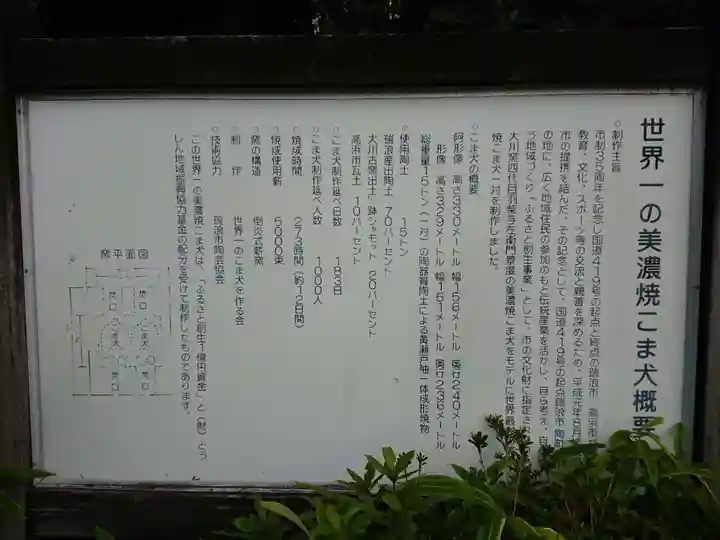 世界一の美濃焼こま犬概要
○制作主旨
市制35周年を記念し国道419号の起点と終点の瑞浪市、高浜市が
教育、文化、スポーツ等の交流と親善を深めるため、平成元年8月
市の提携を結んだ。その記念として、国道419号の起点瑞浪市陶町
の地に、広く地域住民の参加のもと伝統産業を活かし、自ら考え、自
う地域づくり「ふるさと創生事業」として、市の文化財に指定され
大川窯四代目羽柴与左衛門景度の美濃焼こま犬をモデルに世界最
焼こま犬一対を制作しました。
○こま犬の概要
阿形像 高さ330メートル 幅156メートル 奥行240メートル
形像 高さ329メートル 幅151メートル 奥行236メートル
総重量15トン(一対)の陶器質陶土による黄瀬戸釉一体成形焼物
○使用陶土 15トン
瑞浪産出陶土 70パーセント
大川古窯出土 鉢シャモット 20パーセント
高浜市瓦土 10パーセント
○こま犬制作延べ日数 183日
○こま犬制作延べ人数 1000人
○焼成時間 273時間(約12日間)
○焼成使用薪 5000束
○窯の構造 倒炎式薪窯
○制作 世界一のこま犬を作る会
○技術協力 瑞浪市陶芸協会
この世界一の美濃焼こま犬は、「ふるさと創生1億円資金」と(財)とう
しん地域振興協力基金の配分を受けて制作したものであります。
窯平面図
焚口
焚口
こま犬
こま犬
焚口
焚口